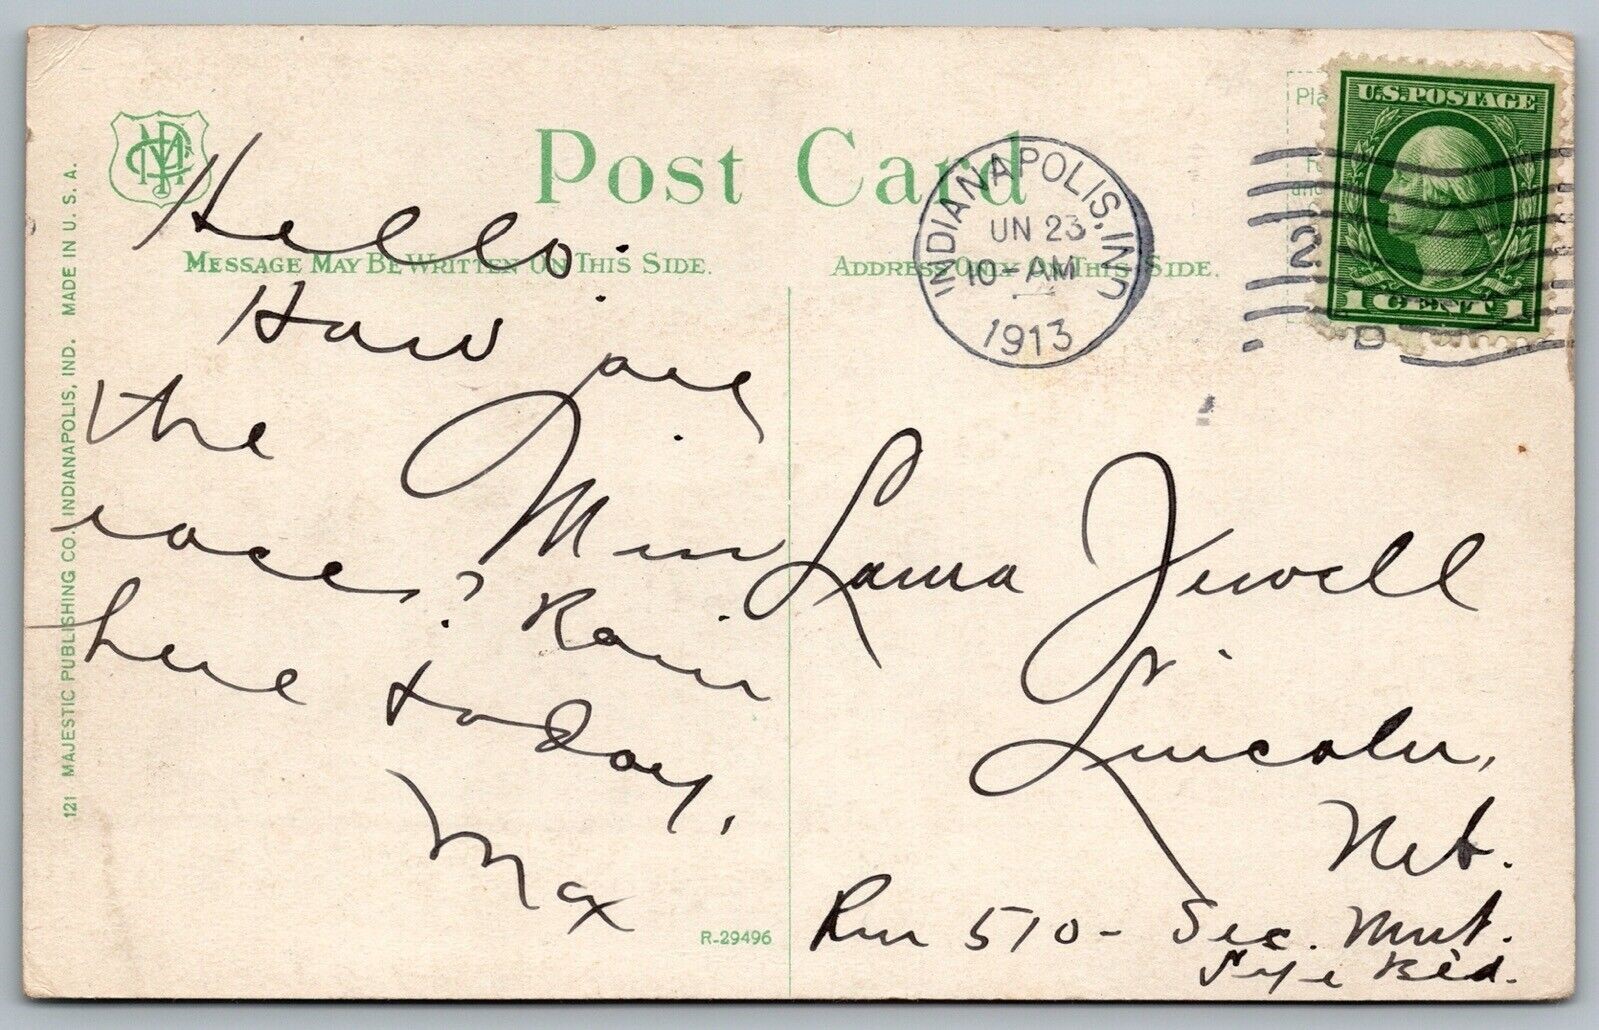 Post Card
MESSAGE MAY BE WRITTEN ON THIS SIDE.
ADDRESS ONLY ON THIS SIDE.
121 MAJESTIC PUBLISHING CO. INDIANAPOLIS, IND. MADE IN U. S. A.
Pla
U.S. POSTAGE
1 CENT 1
INDIANAPOLIS, IND
UN 23
10-AM
1913
2
D
Hello.
How are
the
roses? Rain
here today,
Max
R-29496
Miss Laura Jewell
Lincoln,
Neb.
Rm 510- Sec. Mut.
Life Bld.